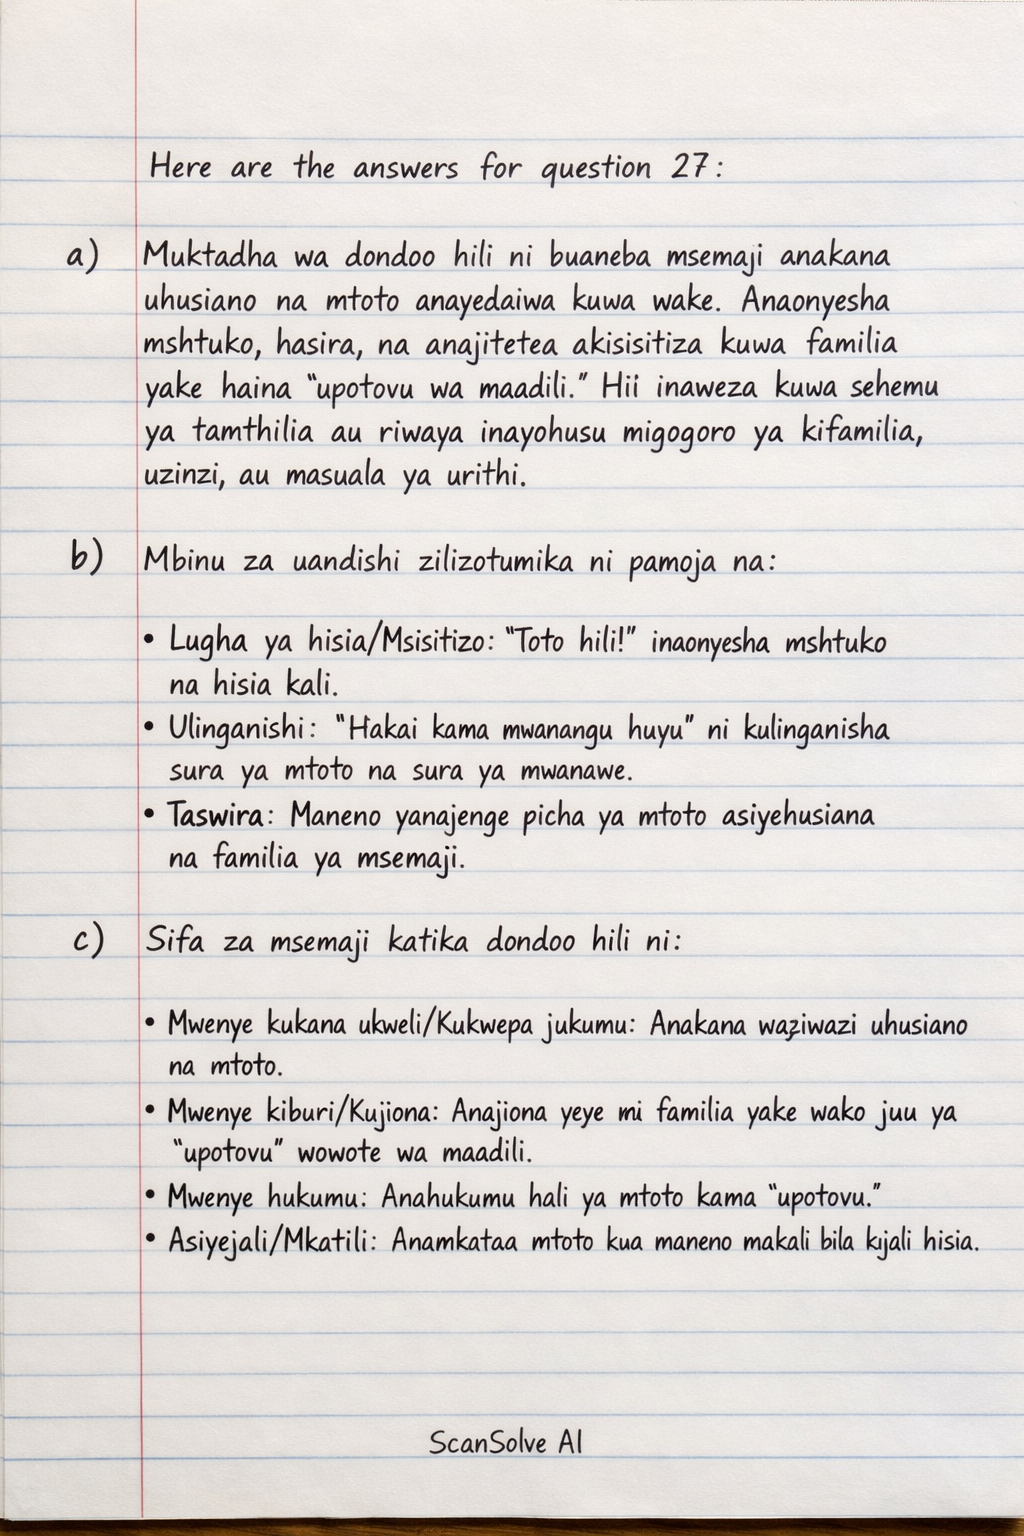 Here are the answers for question 27:
a) Muktadha wa dondoo hili ni buaneba msemaji anakana
uhusiano na mtoto anayedaiwa kuwa wake. Anaonyesha
mshtuko, hasira, na anajitetea akisisitiza kuwa familia
yake haina "upotovu wa maadili." Hii inaweza kuwa sehemu
ya tamthilia au riwaya inayohusu migogoro ya kifamilia,
uzinzi, au masuala ya urithi.
b) Mbinu za uandishi zilizotumika ni pamoja na:
• Lugha ya hisia/Msisitizo: "Toto hili!" inaonyesha mshtuko
na hisia kali.
• Ulinganishi: "Hakai kama mwanangu huyu" ni kulinganisha
sura ya mtoto na sura ya mwanawe.
• Taswira: Maneno yanajenge picha ya mtoto asiyehusiana
na familia ya msemaji.
c) Sifa za msemaji katika dondoo hili ni:
• Mwenye kukana ukweli/Kukwepa jukumu: Anakana waziwazi uhusiano
na mtoto.
• Mwenye kiburi/Kujiona: Anajiona yeye mi familia yake wako juu ya
"upotovu" wowote wa maadili.
• Mwenye hukumu: Anahukumu hali ya mtoto kama "upotovu."
• Asiyejali/Mkatili: Anamkataa mtoto kua maneno makali bila kijali hisia.
ScanSolve AI